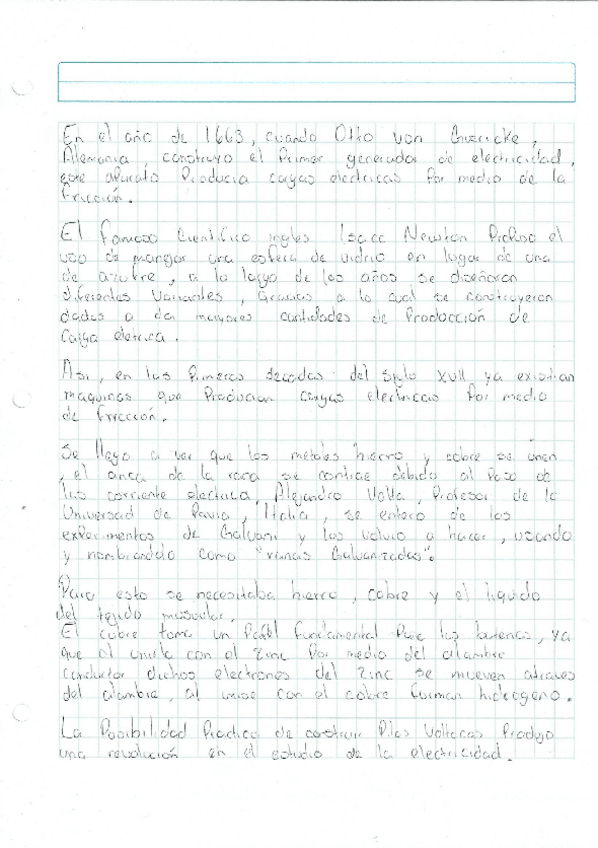 En el año de 1663, cuando Otto von Guericke,
Alemania, construyo el Primer generador de electricidad,
este aparato Producia cargas electricas Por medio de la
fricción.
El famoso Cientifico ingles Isacc Newton Propuso el
uso de manejar una esfera de vidrio en lugar de una
de azufre, a lo largo de los años se diseñaron
diferentes Variantes, Gracias a lo cual se construyeron
dadas a da mayores cantidades de Producción de
Carga eletrica.
Asi, en las Primeras decadas del siglo XVII ya existian
maquinas que Producian cargas electricas Por medio
de fricción.
Se llego a ver que los metales hierro y cobre se unen
, el anca de la rana se contrae debido al Paso de
las corriente electrica, Alejandro Volta, Profesor de la
Universad de Pavia, Italia, se entero de los
experimentos de Galvani y los volvio a hacer, usando
y nombrandolo como "ranas Galvanizadas".
Para esto se necesitaba hierro, cobre y el liquido
del tejido muscular.
El cobre toma un Papel fundamental Para las baterias, ya
que al unirle con el zinc Por medio del alambre
conductor dichos electrones del zinc se mueven atraves
del alambre, al unise con el cobre forman hidrogeno.
La Posibilidad Practica de construir Pilas Voltaicas Produjo
una revolución en el estudio de la electricidad.